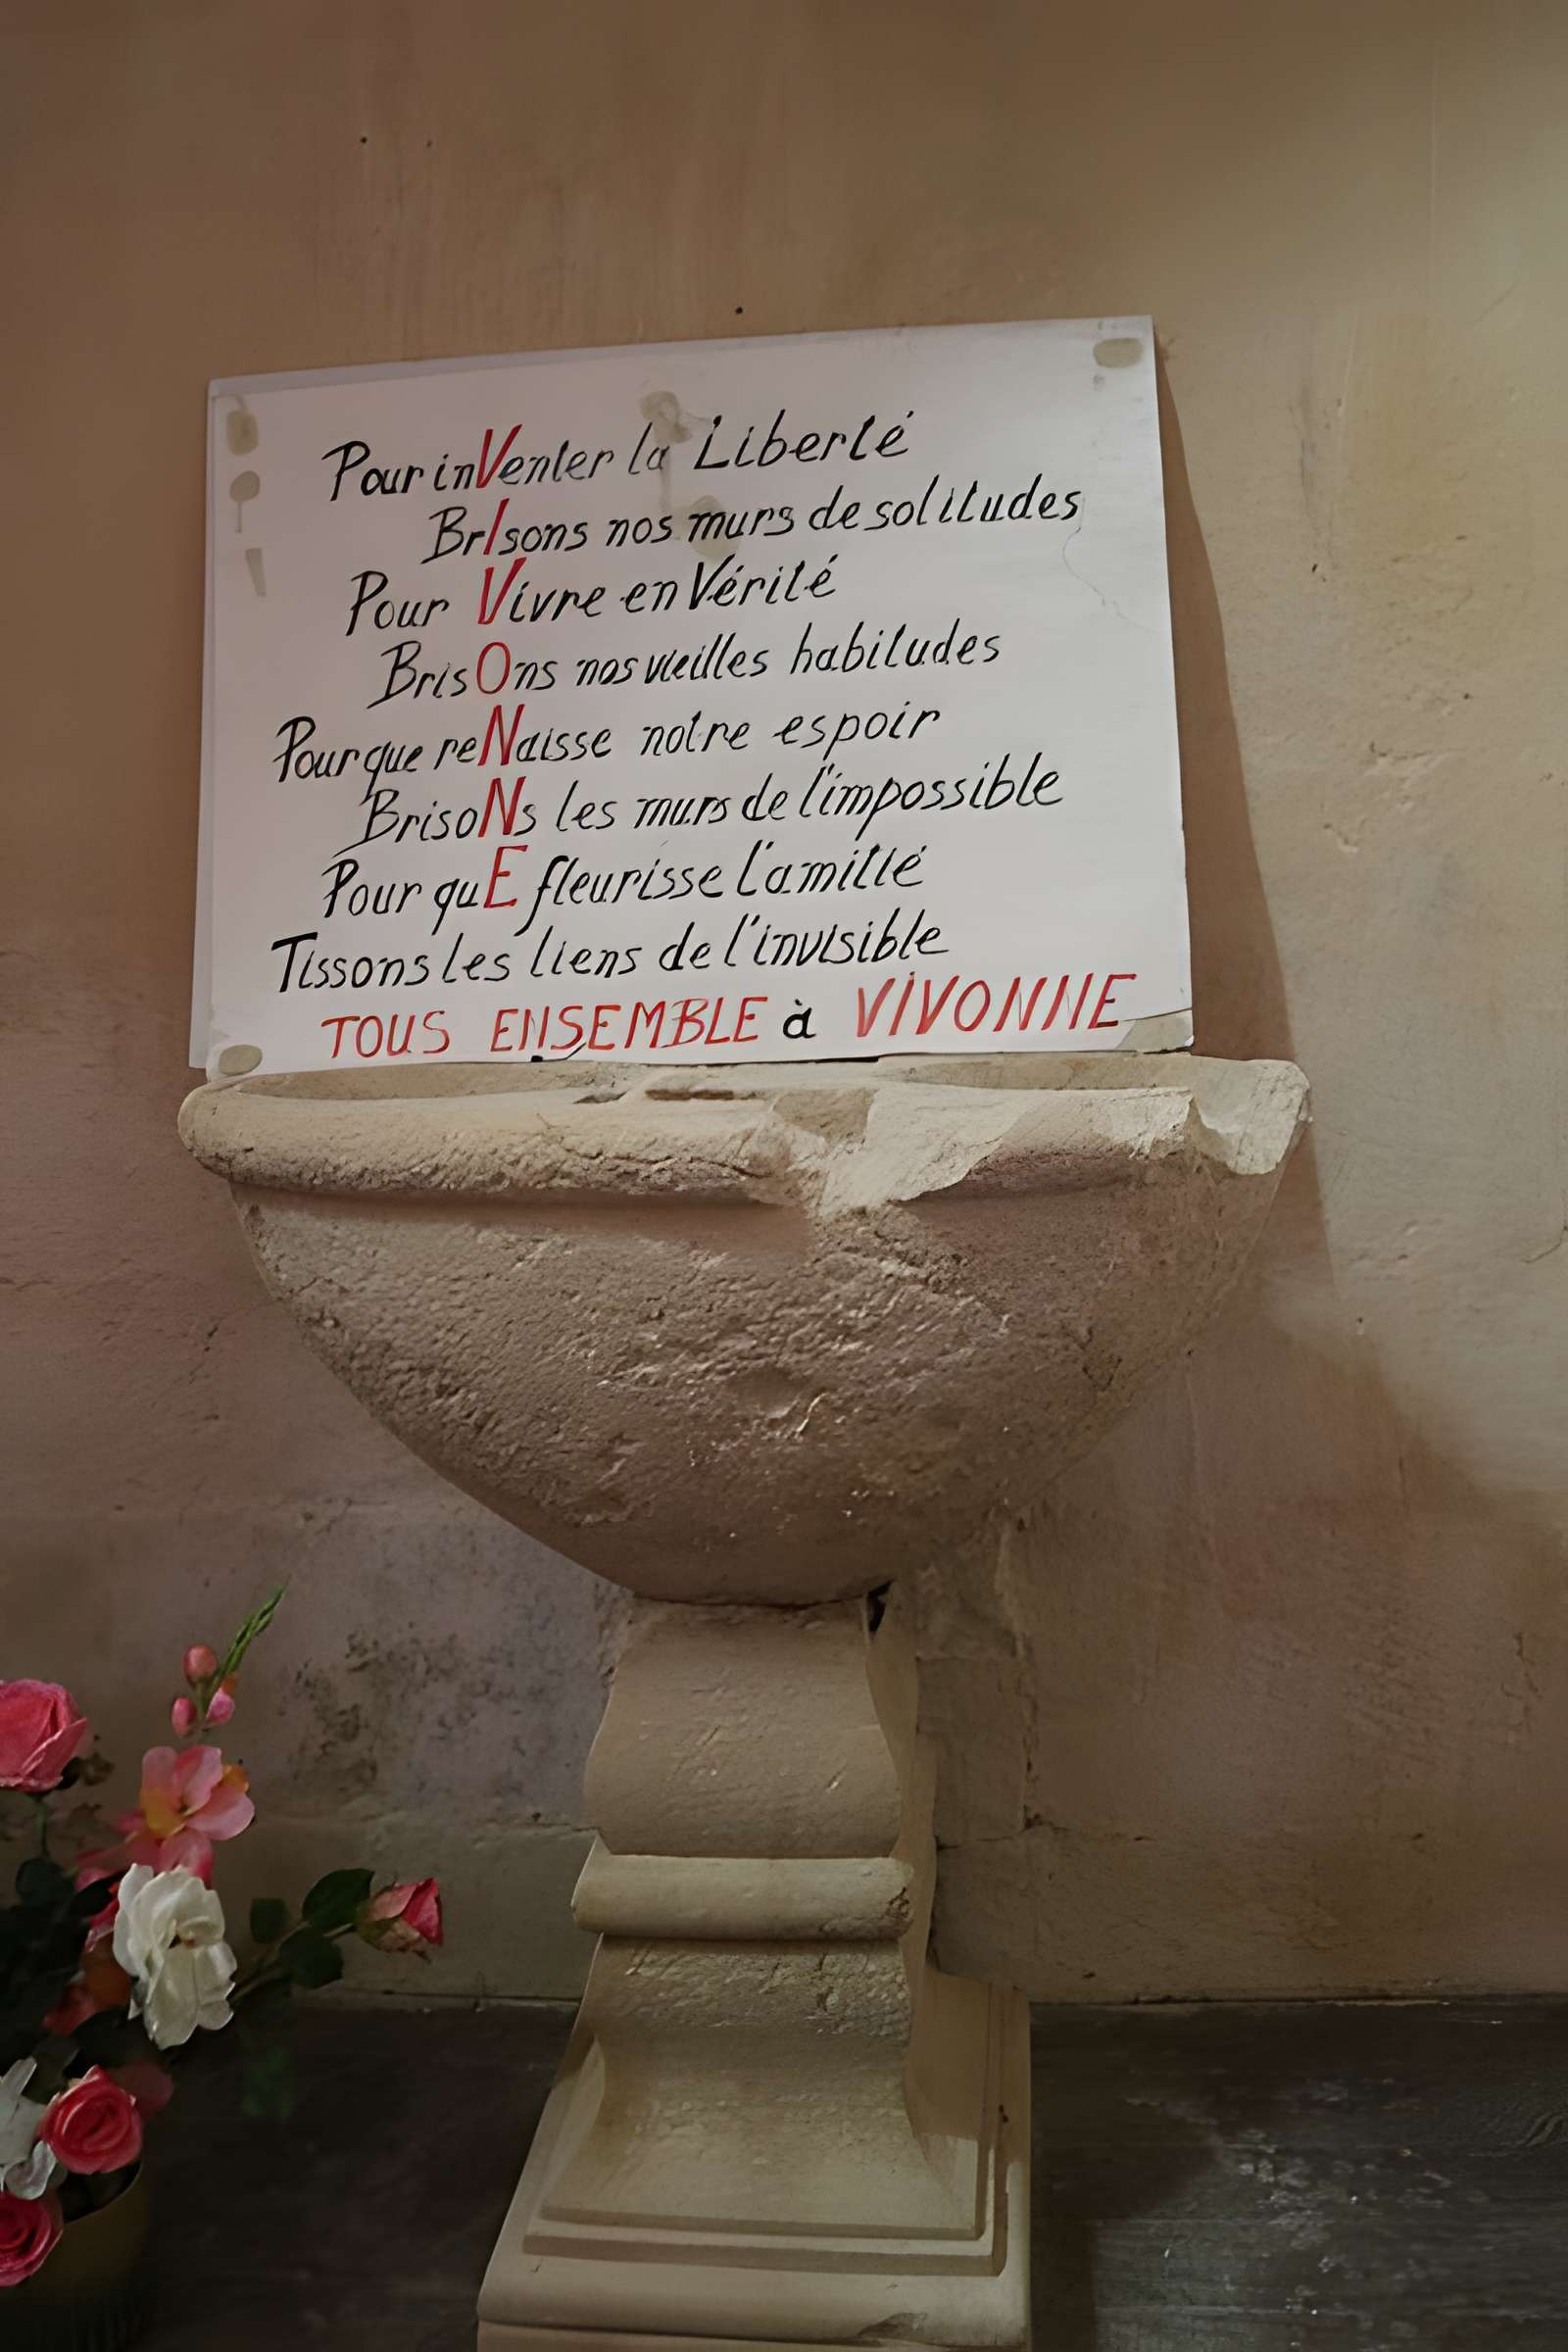 Pour inVenter la Liberté
BrIsons nos murs de solitudes
Pour Vivre en Vérité
BrisOns nos vieilles habitudes
Pour que reNaisse notre espoir
BrisoNs les murs de l'impossible
Pour quE fleurisse l'amitié
Tissons les liens de l'invisible
TOUS ENSEMBLE à VIVONNE